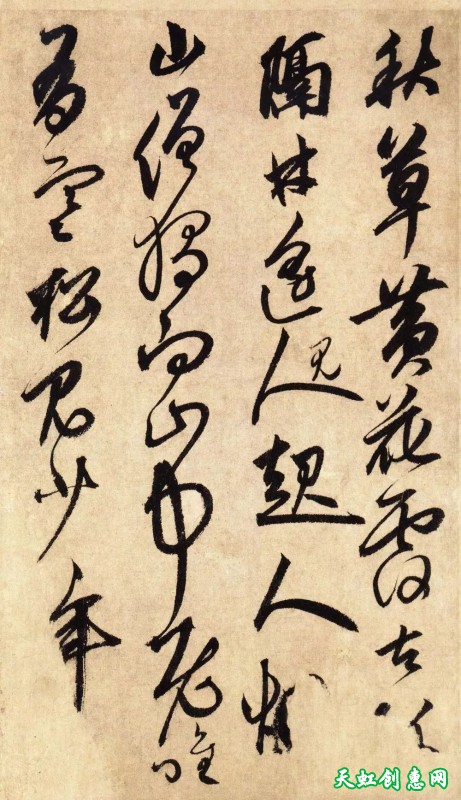 秋草黄花覆古阡
隔林遥人見起人煙
山僧獨向山中老唯
有寒松見少年
天虹创惠网